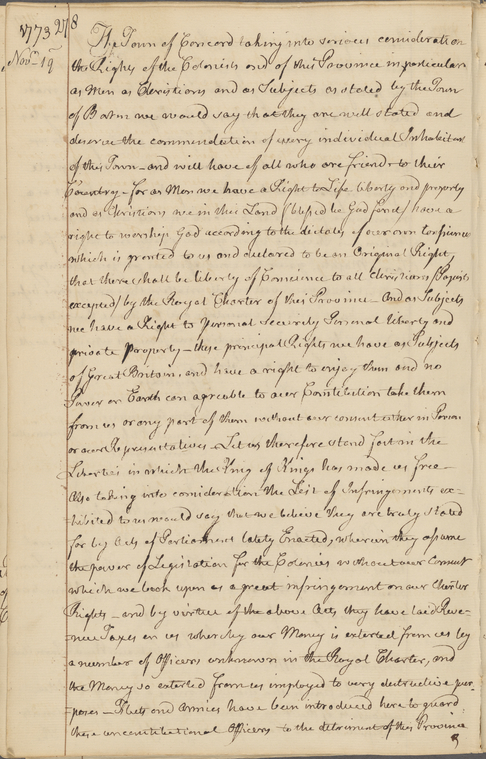 1773 278
Novr 19
The Town of Concord taking into serious consideration
the Rights of the Colonists and of this Province in particular
as Men as Christians and as Subjects as stated by the Town
of Boston we would say that they are well stated and
deserve the commendation of every individual Inhabitant
of this Town - and will have of all who are friends to their
Country - for as Men we have a Right to Life liberty and property
and as Christians we in this Land (blessed be God for it) have a
right to worship God according to the dictates of our own Consience
which is granted to us and declared to be an Original Right,
that there shall be liberty of Consience to all Christians (Papists
excepted) by the Royal Charter of this Province - And as Subjects
we have a Right to personal security Personal liberty and
private Property - these principal Rights we have as Subjects
of Great Britain, and have a right to enjoy them and no
Power on Earth can agreable to our Constitution take them
from us or any part of them without our consent either in Person
or our Representatives - Let us therefore stand fast in the
Liberties in which the King of Kings has made us free -
Also taking into consideration the List of Infringements ex-
-hibited to us would say that we believe they are truly stated
for by Acts of Parliament lately Enacted, wherein they assume
the power of Legislation for the Colonies without our Consent
which we look upon as a great infringement on our Charter
Rights - and by virtue of the above Acts they have laid Reve-
-nue Taxes on us whereby our Money is extorted from us by
a number of Officers unknown in the Royal Charter, and
the Money so extorted from us imployed to very destructive pur-
-poses - Fleets and armies have been introduced here to guard
these unconstitutional Officers to the detriment of this Province